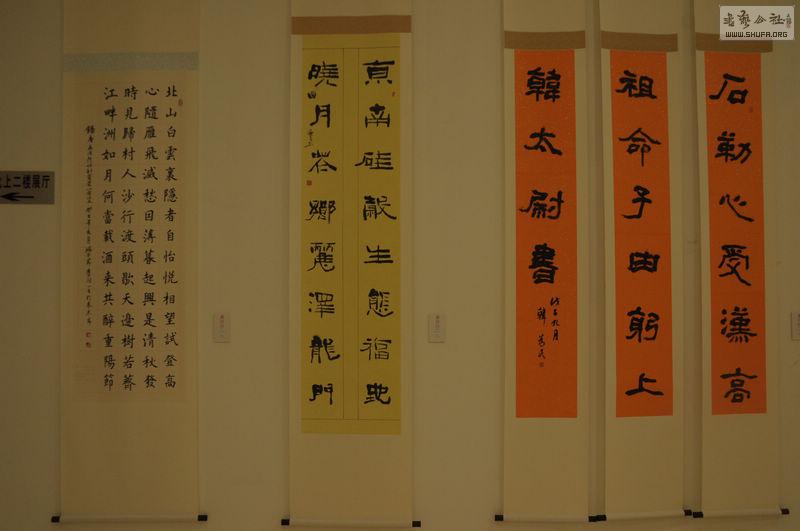 書藝公社
WWW.SHUFA.ORG
上二楼展厅
石勒心受漢高
祖命子由躬上
韓太尉書
真南硅穀生態福地
曉月岕鄉麗澤龍門
北山白雲裏隱者自怡悅相望試登高
心隨雁飛滅愁因薄暮起興是清秋發
時見歸村人沙行渡頭歇天邊樹若薺
江畔洲如月何當載酒來共醉重陽節